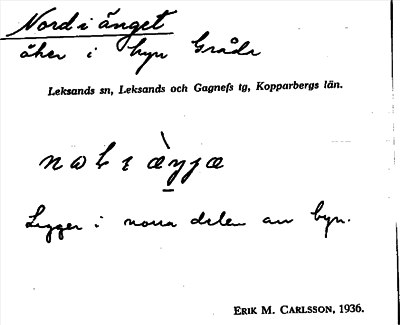 Nord i änget
åker i byn Gråda
Leksands sn, Leksands och Gagnefs tg, Kopparbergs län.
Ligger i norra delen av byn.
ERIK M. CARLSSON, 1936.